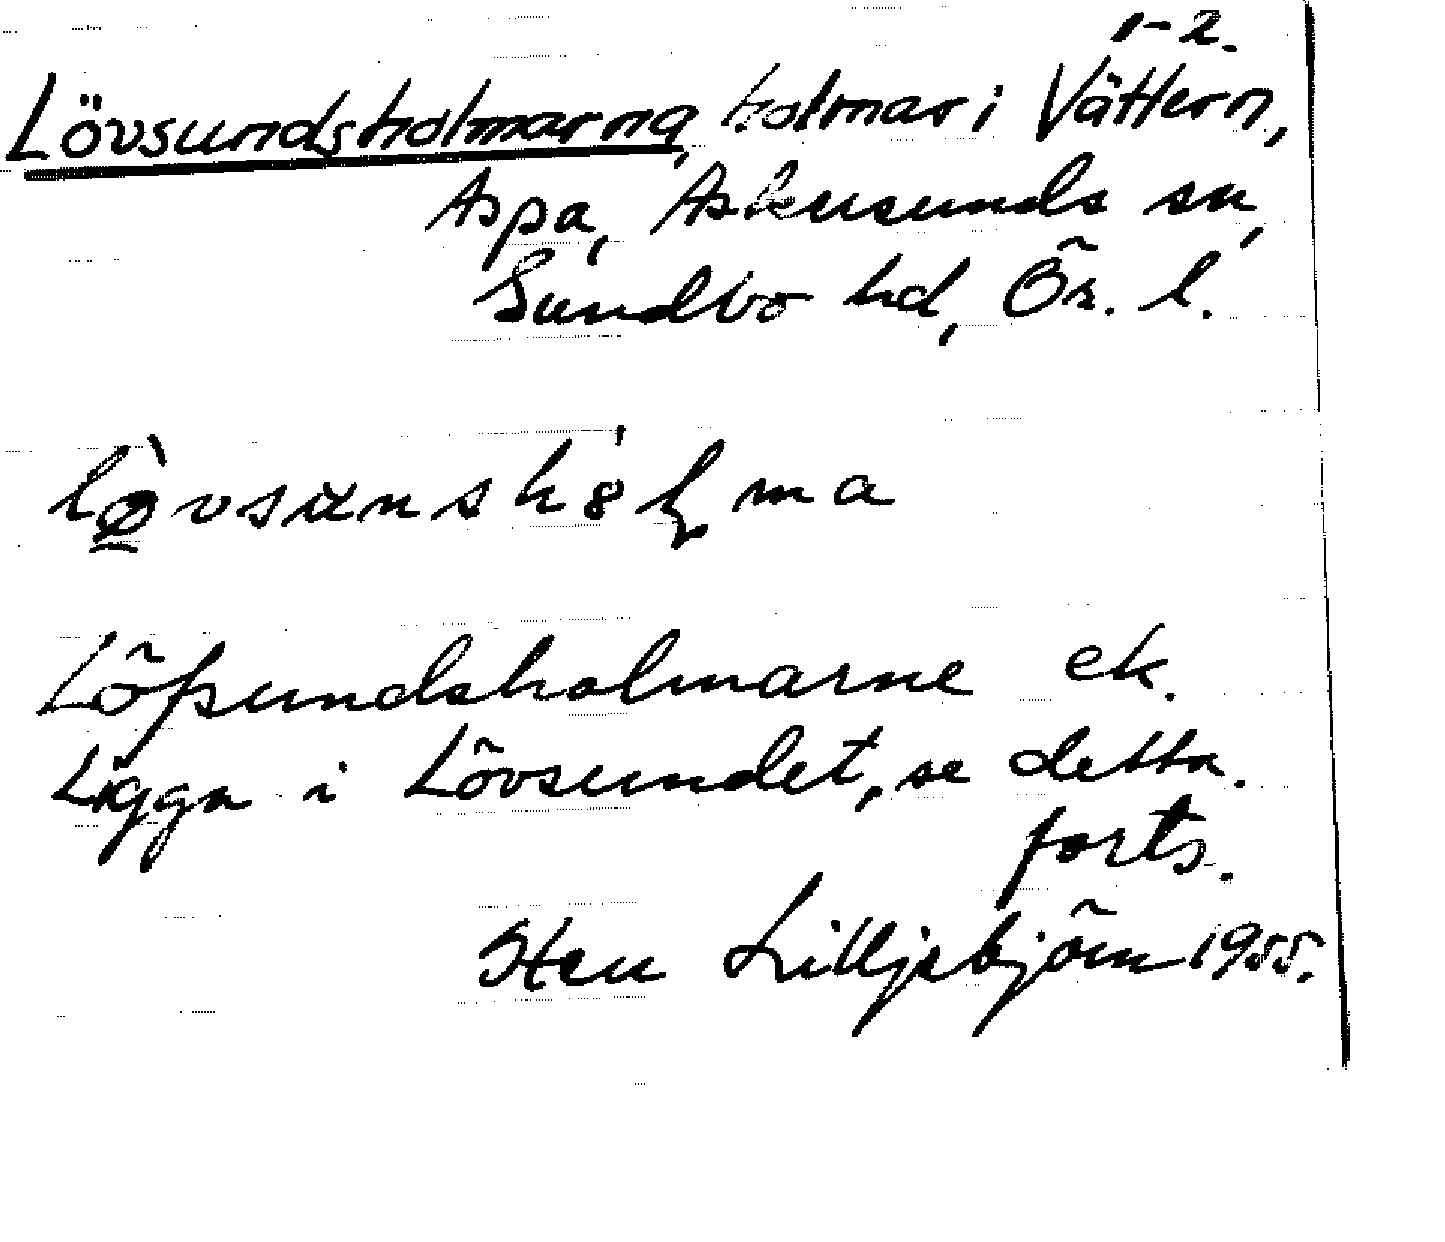 1-2.
Lövsundsholmarna, holmar i Vättern,
Aspa, Askersunds sn,
Sundbo hd, Ör. l.
Löfsundsholmarne ek.
Ligga i Lövsundet, se detta.
forts.
Sten Lilljebjörn 1955.